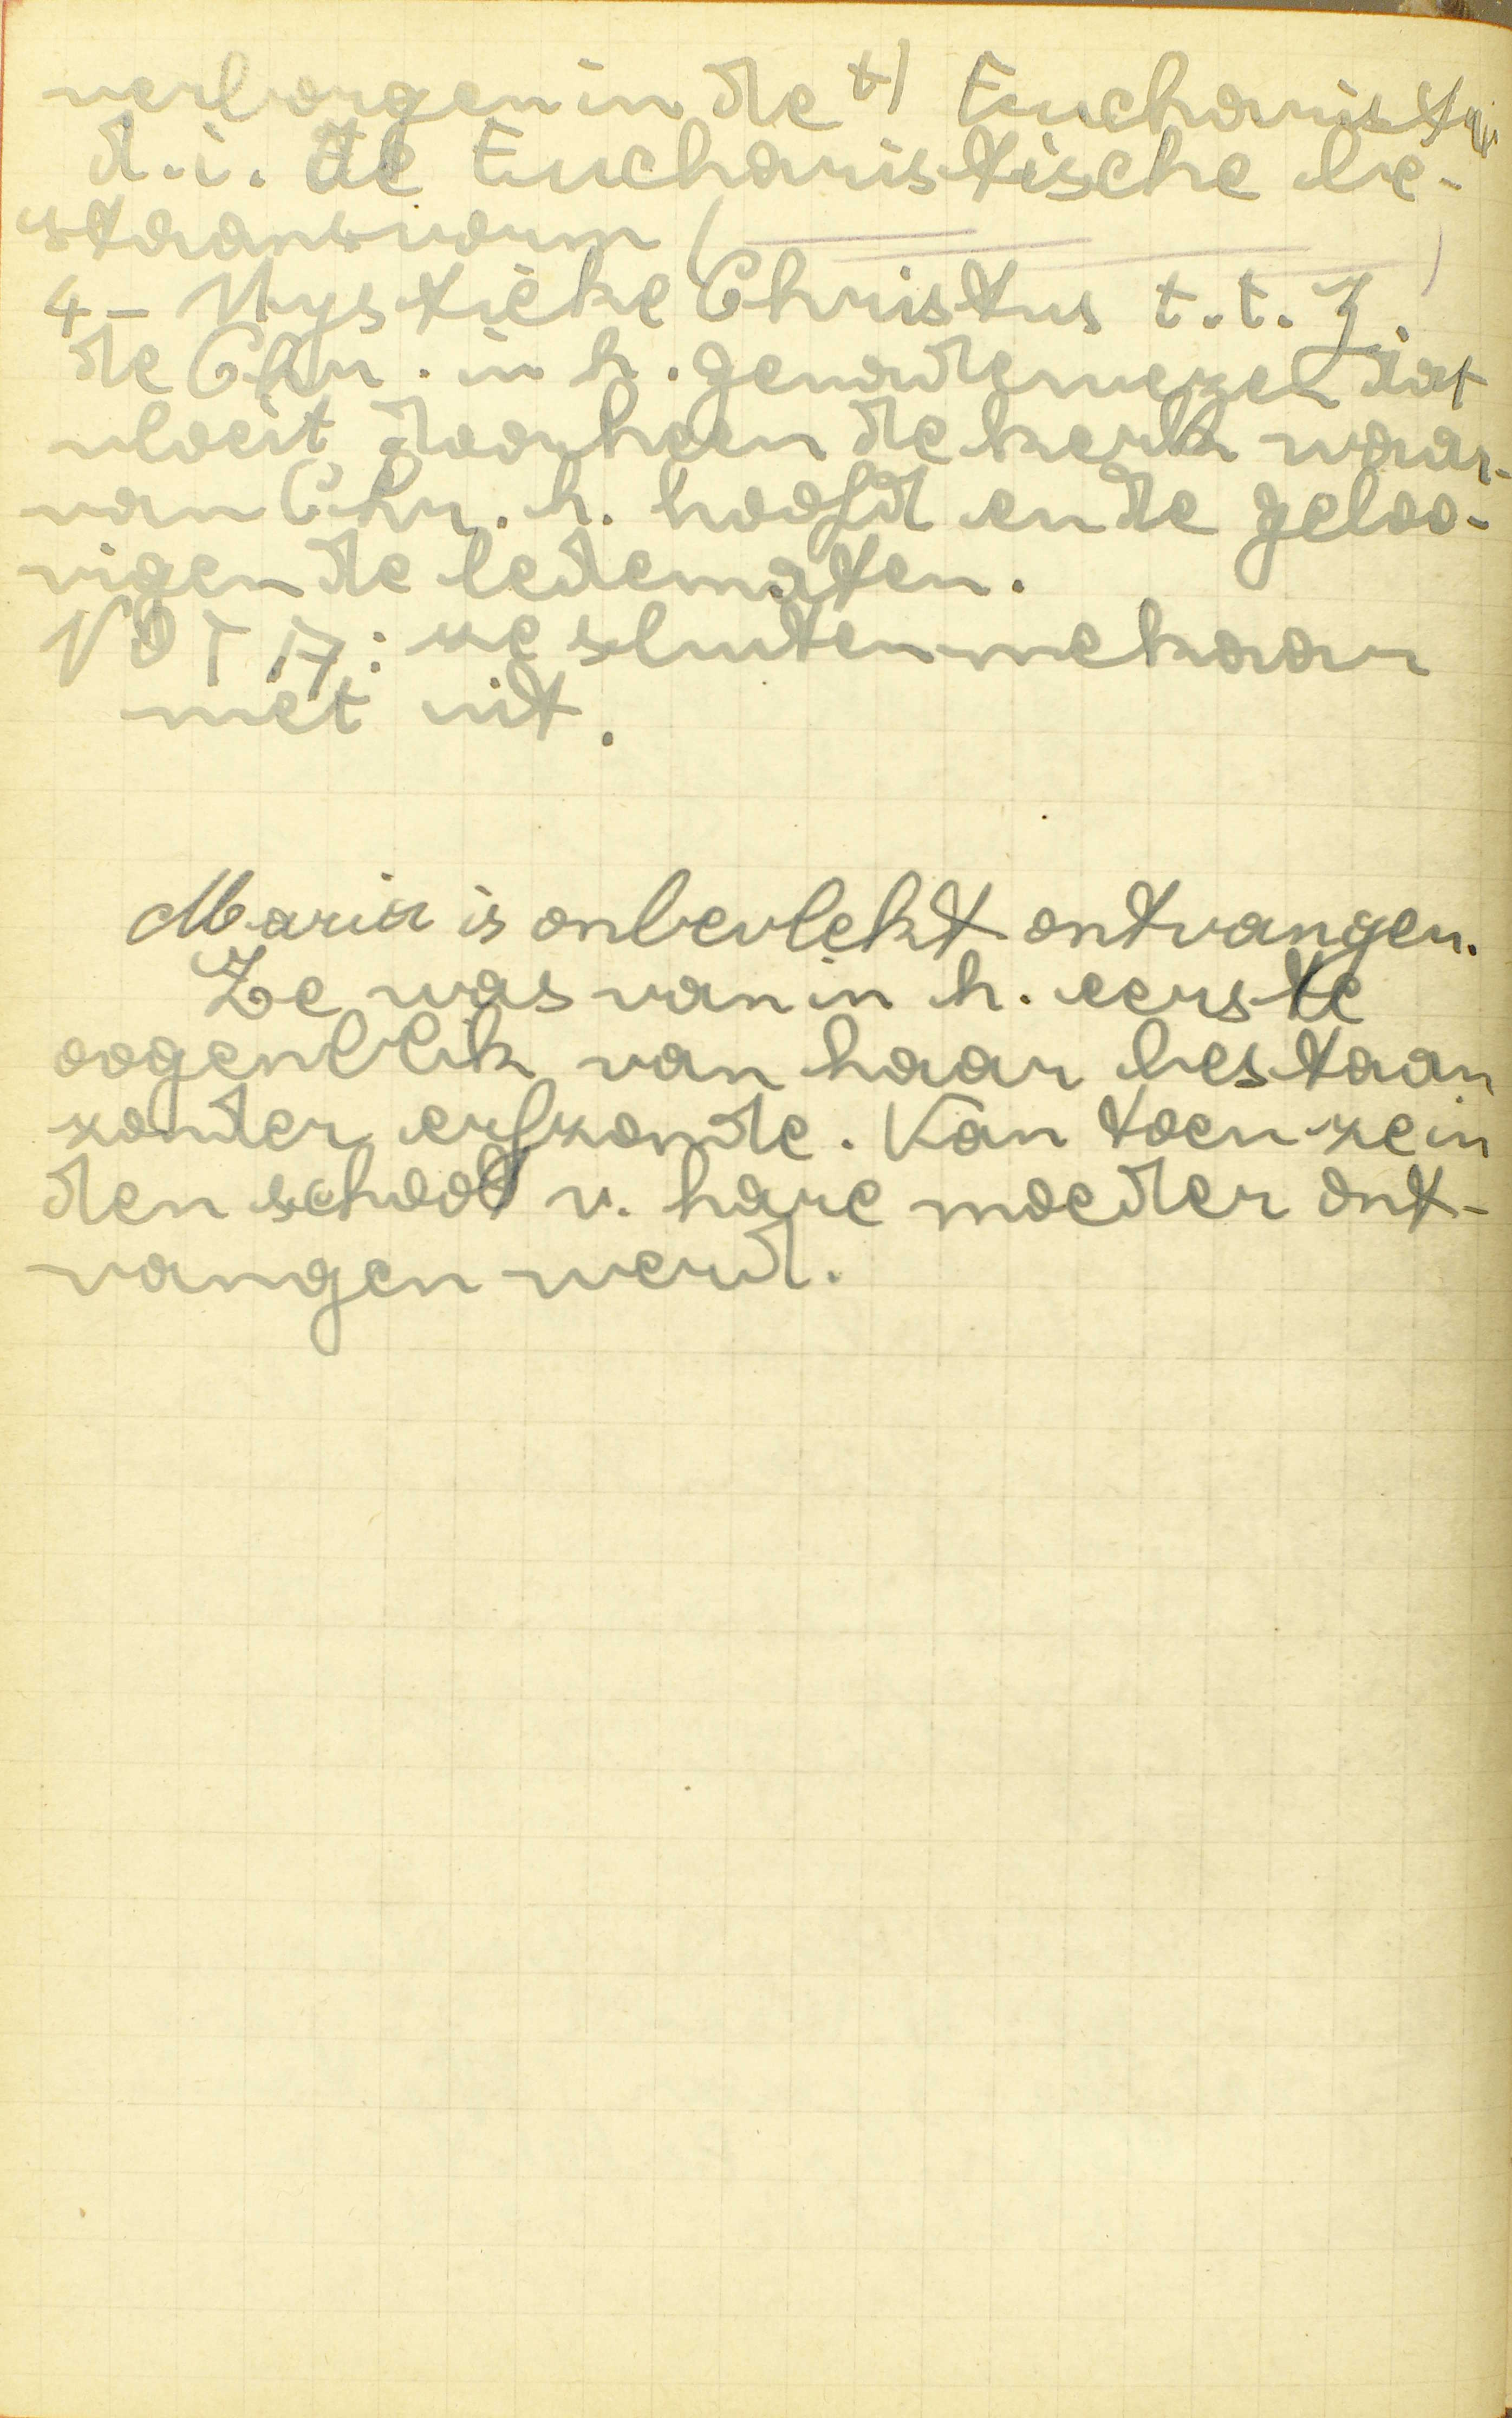 verborgen in de H Eucharistie
d.i. de Eucharistische be-
staansvorm
4- Mystieke Christus t.t.z.
de Chr. in h. genadewezen dat
vloeit doorheen de kerk waar-
van Chr. h. hoofd en de geloo-
vigen de ledematen.
NOTA: ze sluiten mekaar
niet uit.
Maria is onbevlekt ontvangen.
Ze was van in h. eerste
oogenblik van haar bestaan
zonder erfzonde. Van toen ze in
den schoot v. hare moeder ont-
vangen werd.